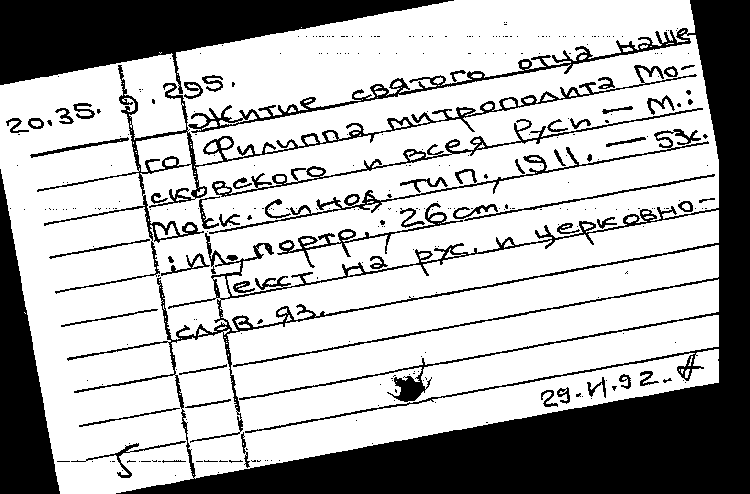 20.35. 9.295.
Житие святого отца наше
го Филиппа, митрополита Мо-
сковского и всея Руси. — М.:
Моск. Синод. тип., 1911. — 53с.
: ил., портр.; 26 см.
Текст на рус. и церковно-
слав. яз.
29.VI.92.
5